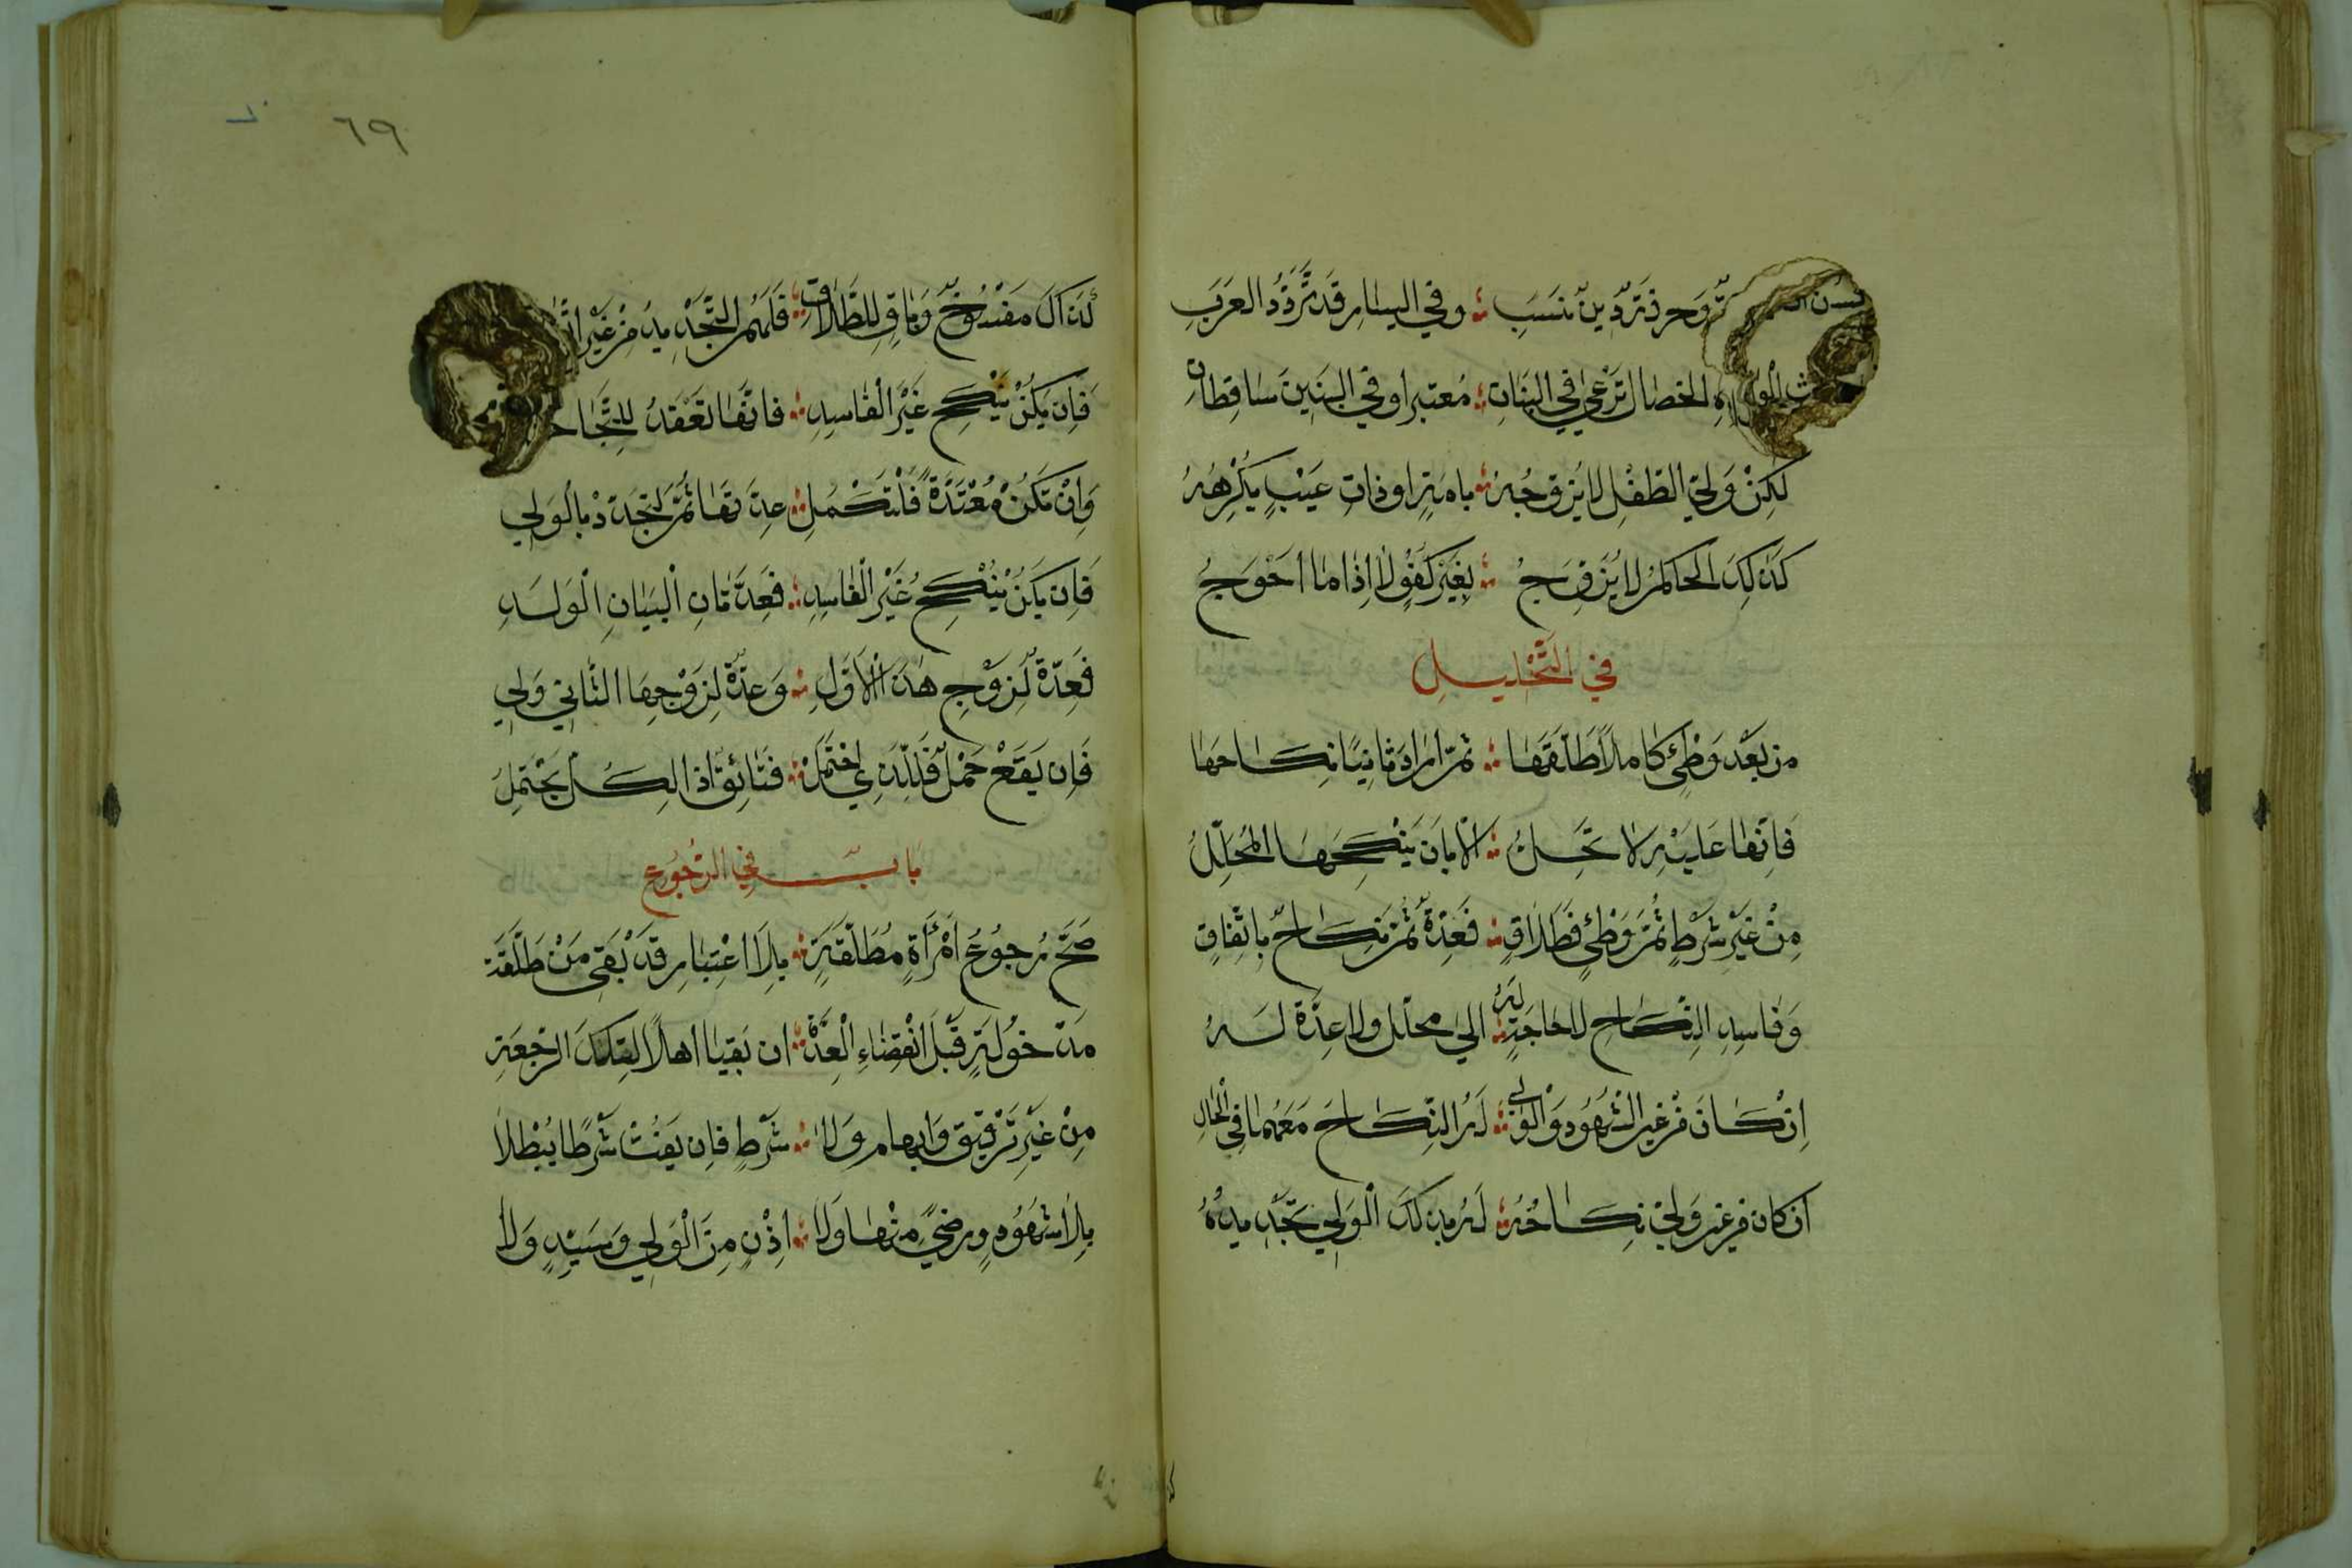 وَحرفة دين نسب ؞ وفي اليسار قد تردد العرب
الخصال ترعي في البنات ؞ معتبرا وفي البنين ساقطات
لكِنْ وَلِيّ الطفل لا يزوجه ؞ باِمَةٍ او ذاتِ عَيْبٍ يكْرهُهُ
كذلِكَ الحاكم لا يُزَوِّجُ ؞ بِغَيْرِ كُفْوٍ لا اِذا ما احْوَجُ
في التَّحْليلِ
من بعْد وَطْئٍ كاملاً طَلَّقَها ؞ ثمّ اراد ثانيًا نكاحها
فَاِنَّها عَلَيْهِ لا تَحِلُّ ؞ الا بان يَنْكِحَهَا المُحَلِّلُ
مِنْ غَيْرِ شَرْطٍ ثُمَّ وَطْئٍ فَطَلاقٍ ؞ فَعِدّةٌ ثمّ نِكاحٌ باتّفاقٍ
وَفاسِدِ النِّكَاحِ لا حاجَةٍ لَهُ ؞ الي محلّل ولا عِدّة لَهُ
اِنْ كَانَ مْن غير الشهُودِ وَالْوَلي ؞ لَهُ النِّكاحَ مَعَهُما في الْحَالِ
ان كان مِن غير وَلِيّ نِكاحُهُ ؞ لَهُ بذلكَ الْوَلي تَجْديدُهُ
لذاكَ مَفْسُوخٌ وَباقٍ لِلطَّلاقِ ؞ فَلَهُمُ التّجْديدُ مِنْ غَيْرِ
فَاِن يَكُنْ يَنْكِحُ غَيْرَ الفاسِدِ ؞ فانّها تعْقدُ للنّجاح
وَاِنْ تَكُنْ مُعْتَدَّةً فَلْتَكْمُلِ ؞ عِدّتها ثُمَّ لتجَدّدْ بالْوَلي
فَاِن يَكُنْ يَنْكِحُ غَيْرَ الْفاسِدِ ؞ فَعِدَّتانِ الْبَيانِ الْوَلَدِ
فَعِدّةٌ لِزَوْجِ هٰذَا الْاَوَّلِ ؞ وَعِدّةٌ لِزَوْجِهَا الثَّاني وَلي
فَاِن يَقَعْ حَمْلٌ فَلِلّذي احْتَمَلْ ؞ فَقائِقٌ اذا لِكُلٍّ يَحْتَمِلُ
بابٌ في الرّجُوع
صَحَّ رُجوُعُ امْرَأَةٍ مُطَلّقَةٍ ؞ بِلَا اعْتِبارِ قَدْ بَقي مَنْ طَلّقَهْ
مَدْخوُلَةٍ قَبْلَ انْقِضاءِ الْعِدَّةِ ؞ ان بَقيا اهلًا لتلكَ الرّجْعَةِ
مِنْ غَيْرِ تَوْقيتٍ وَابهامٍ وَلا ؞ شَرْطٍ فاِن يَفُتْ شَرْطًا يُبْطَلا
بِلا شهُودٍ ورِضيً مِنْها وَلا ؞ اِذْنٍ مِنَ الْوَلي وَسَيّدٍ وَلا
٦٩